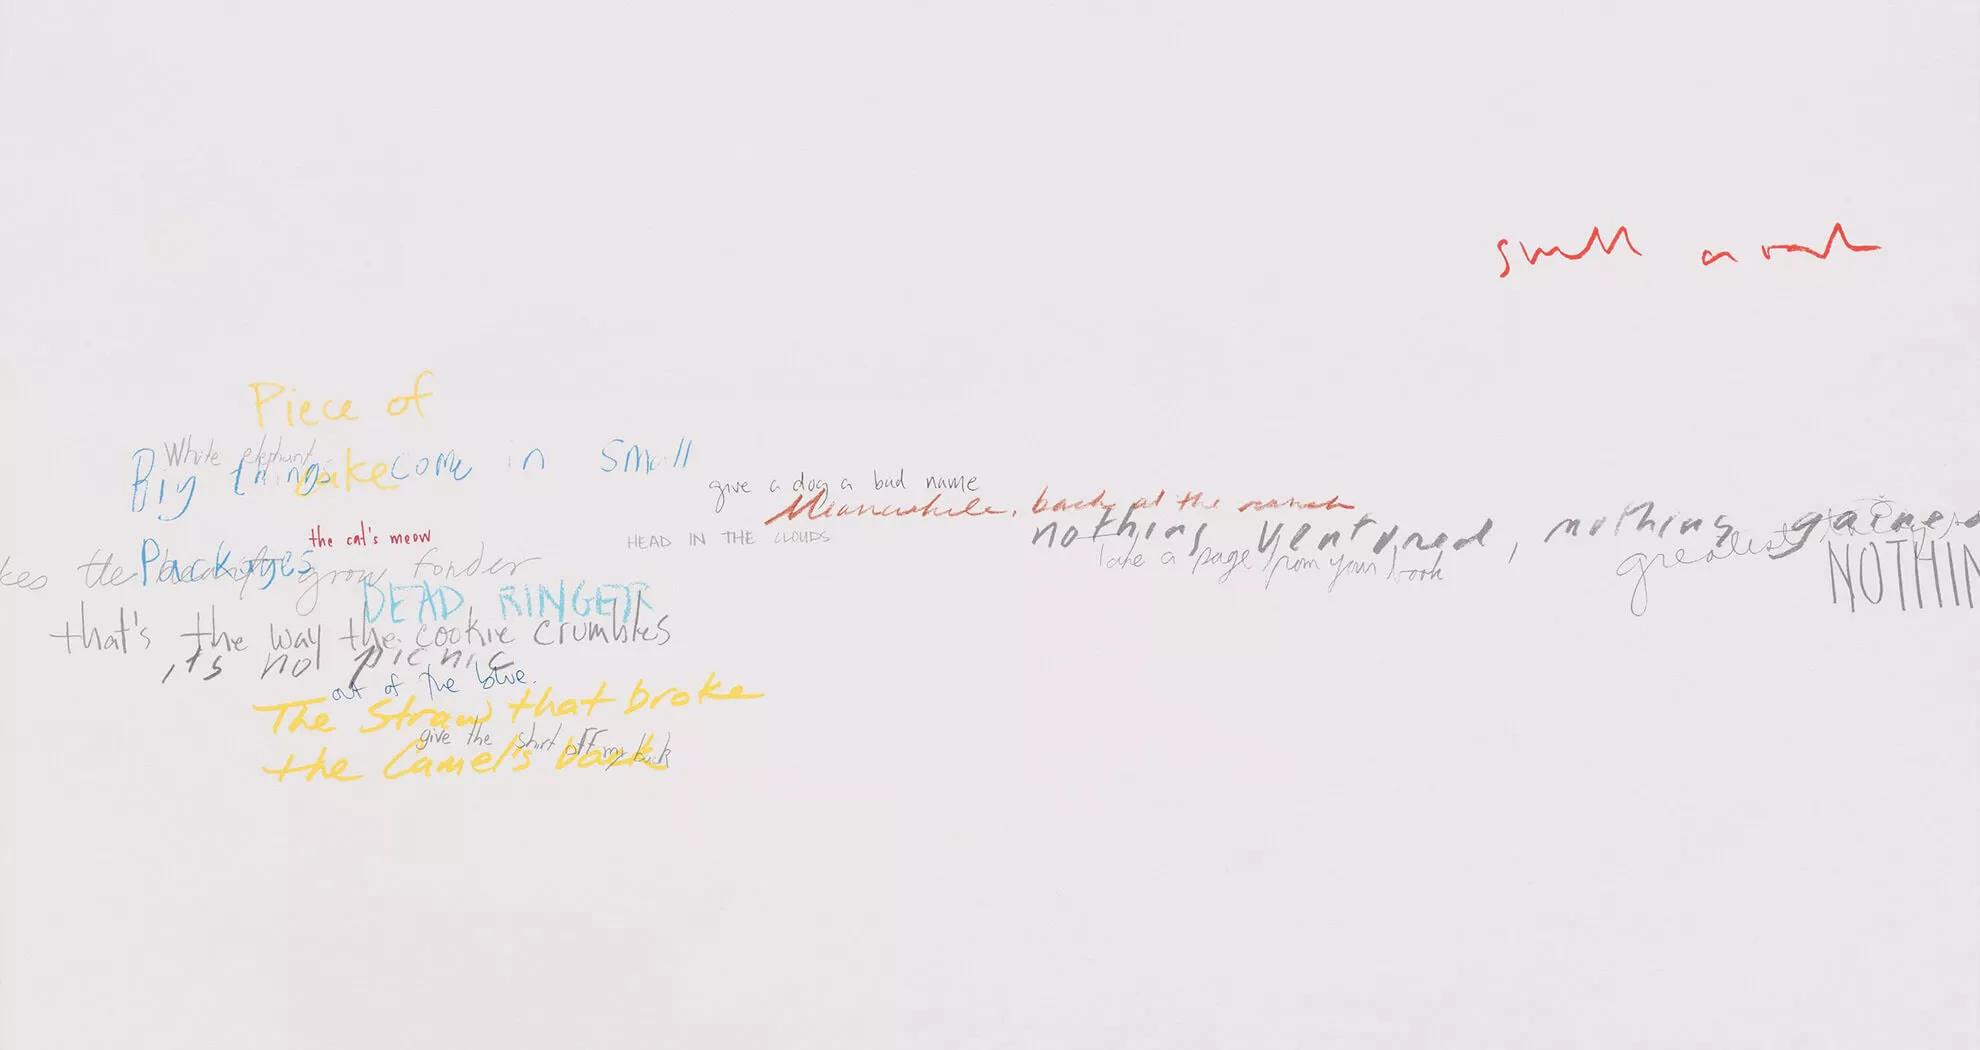 smell a rat
Piece of
cake
White elephant
Big things come in small
Packages
give a dog a bad name
Meanwhile, back at the ranch
the cat's meow
HEAD IN THE CLOUDS
nothing ventured, nothing gained
take a page from your book
greatest
NOTHIN
kes the heart grow fonder
DEAD RINGER
that's the way the cookie crumbles
its no picnic
out of the blue.
The Straw that broke
the Camel's back
give the shirt off my back